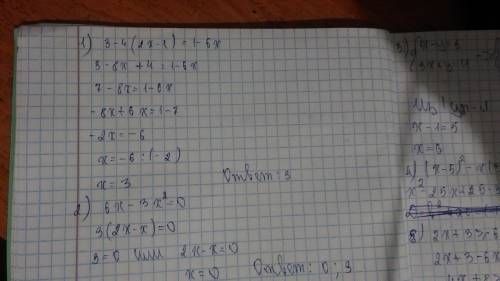 1) 3-4(2x-1)=1-6x
3-8x+4=1-6x
7-8x=1-6x
-8x+6x=1-7
-2x=-6
x=-6:(-2)
x=3
Ответ: 3
2) 6x-3x²=0
3(2x-x)=0
3=0 или 2x-x=0
x=0 Ответ: 0; 3
x-1=5
x=6
4) (x-5)²-x(
x²-25x+25-
5) 2x+33-6
2x+3-6x